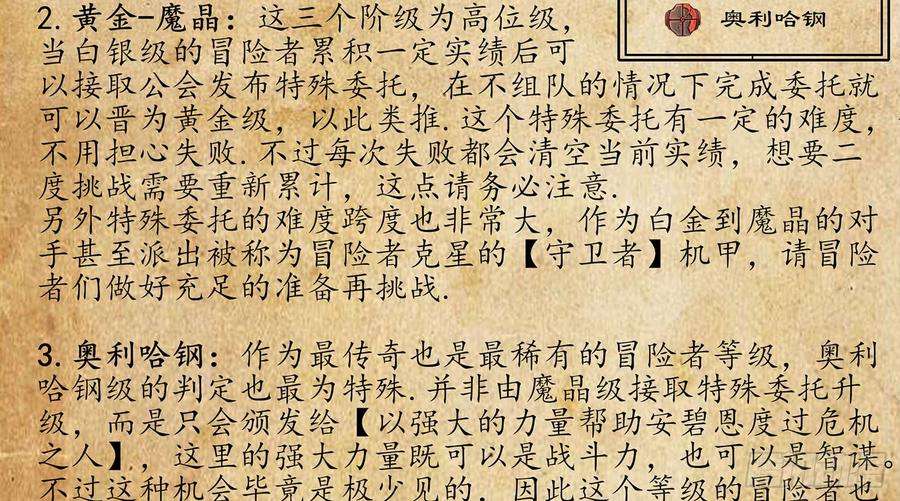 2. 黄金-魔晶：这三个阶级为高位级，
奥利哈钢
当白银级的冒险者累积一定实绩后可
以接取公会发布特殊委托，在不组队的情况下完成委托就
可以晋为黄金级，以此类推.这个特殊委托有一定的难度，
不用担心失败.不过每次失败都会清空当前实绩，想要二
度挑战需要重新累计，这点请务必注意.
另外特殊委托的难度跨度也非常大，作为白金到魔晶的对
手甚至派出被称为冒险者克星的【守卫者】机甲，请冒险
者们做好充足的准备再挑战.
3. 奥利哈钢：作为最传奇也是最稀有的冒险者等级，奥利
哈钢级的判定也最为特殊.并非由魔晶级接取特殊委托升
级，而是只会颁发给【以强大的力量帮助安碧恩度过危机
之人】，这里的强大力量既可以是战斗力，也可以是智谋。
不过这种机会毕竟是极少见的，因此这个等级的冒险者也